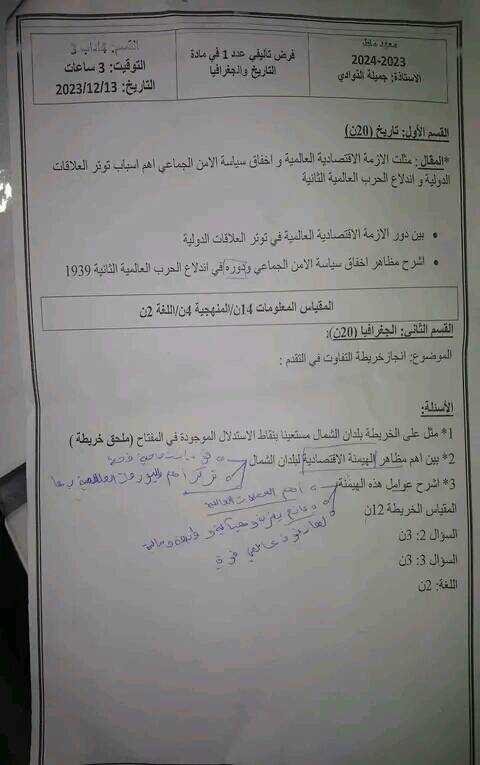 معهد ماطر
2024-2023
الاستاذة: جميلة الذوادي
فرض تأليفي عدد 1 في مادة
التاريخ والجغرافيا
القسم: 4اداب 3
التوقيت: 3 ساعات
التاريخ: 2023/12/13
القسم الأول: تاريخ (20ن)
*المقال: مثلت الازمة الاقتصادية العالمية و اخفاق سياسة الامن الجماعي اهم اسباب توتر العلاقات
الدولية و اندلاع الحرب العالمية الثانية
• بين دور الازمة الاقتصادية العالمية في توتر العلاقات الدولية
• اشرح مظاهر اخفاق سياسة الامن الجماعي ودوره في اندلاع الحرب العالمية الثانية 1939
المقياس المعلومات 14ن/المنهجية 4ن/اللغة 2ن
القسم الثاني: الجغرافيا (20ن):
الموضوع: انجازخريطة التفاوت في التقدم :
الأسئلة:
1* مثل على الخريطة بلدان الشمال مستعينا بنقاط الاستدلال الموجودة في المفتاح (ملحق خريطة )
2* بين اهم مظاهر الهيمنة الاقتصادية لبلدان الشمال
تركز أهم
3* اشرح عوامل هذه الهيمنة
أهم العملات العالمية
المقياس الخريطة 12ن
السؤال 2: 3ن
السؤال 3: 3ن
اللغة: 2ن